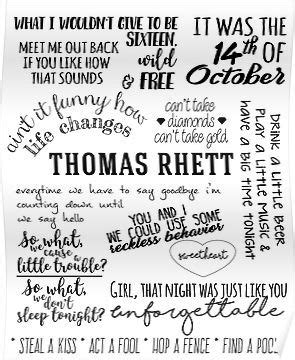 WHAT I WOULDN'T GIVE TO BE
SIXTEEN,
wild
& FREE
IT WAS THE
14th OF
October
MEET ME OUT BACK
IF YOU LIKE HOW
THAT SOUNDS
ain't it funny how
life changes
can't take
diamonds
can't take gold
DRINK A LITTLE BEER
PLAY A LITTLE MUSIC &
HAVE A BIG TIME TONIGHT
THOMAS RHETT
everytime we have to say goodbye i'm
counting down until
we say hello
YOU AND I
WE COULD USE SOME
reckless behavior
So what,
cause a
little trouble?
sweetheart
So what,
we don't
sleep tonight?
GIRL, THAT NIGHT WAS JUST LIKE YOU
unforgettable
* STEAL A KISS * ACT A FOOL * HOP A FENCE * FIND A POOL